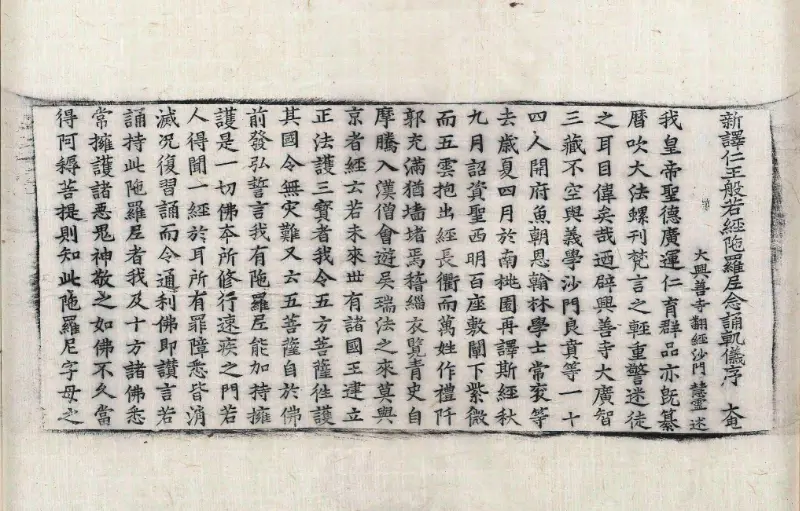 新譯仁王般若經陁羅尼念誦軌儀序
大興善寺翻經沙門慧靈述
我皇帝聖德廣運仁育群品亦旣纂
曆吹大法螺刊梵言之輕重警迷徒
之耳目偉矣哉迺辟興善寺大廣智
三藏不空與義學沙門良賁等一十
四人開府魚朝恩翰林學士常衮等
去歲夏四月於南桃園再譯斯經秋
九月詔資聖西明百座敷闡下紫微
而五雲抱出經長衢而萬姓作禮阡
郭充滿猶墻堵焉稽緇衣覽青史自
摩騰入漢僧會遊吳瑞法之來莫與
京者經云若未來世有諸國王建立
正法護三寳者我令五方菩薩往護
其國令無灾難又云五菩薩自於佛
前發弘誓言我有陁羅尼能加持擁
護是一切佛夲所修行速疾之門若
人得聞一經於耳所有罪障悉皆消
滅况復習誦而令通利佛即讃言若
誦持此陁羅尼者我及十方諸佛悉
常擁護諸惡鬼神敬之如佛不久當
得阿耨菩提則知此陁羅尼字母之